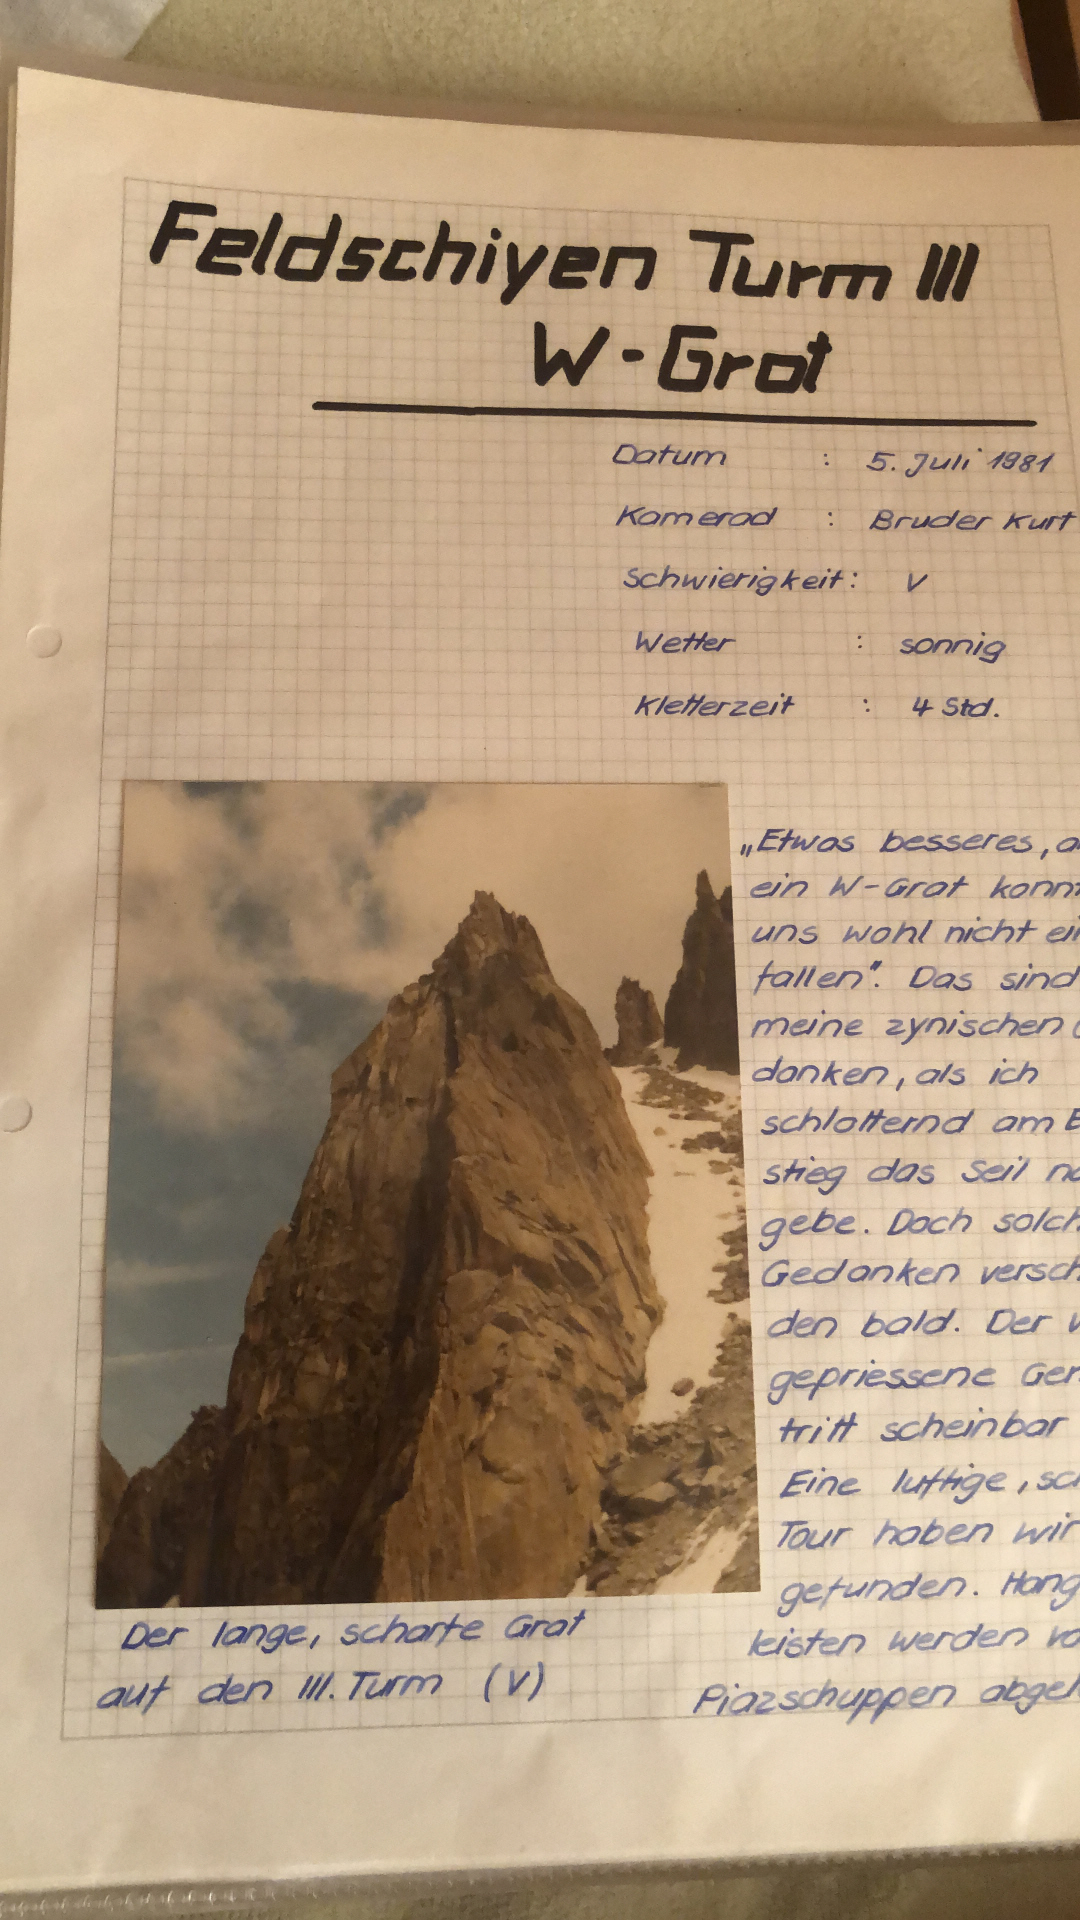 Feldschiyen Turm III
W-Grat
Datum : 5. Juli 1981
Kamerad : Bruder Kurt
Schwierigkeit: V
Wetter : sonnig
Kletterzeit : 4 Std.
„Etwas besseres,
ein W-Grat
uns wohl nicht
fallen". Das sind
meine zynischen
danken, als ich
schlotternd am
stieg das Seil
gebe. Doch
Gedanken
den bald. Der
gepriessene
tritt scheinbar
Eine luftige,
Tour haben wir
gefunden.
leisten werden
Piazschuppen
Der lange, scharfe Grat
auf den III. Turm (V)